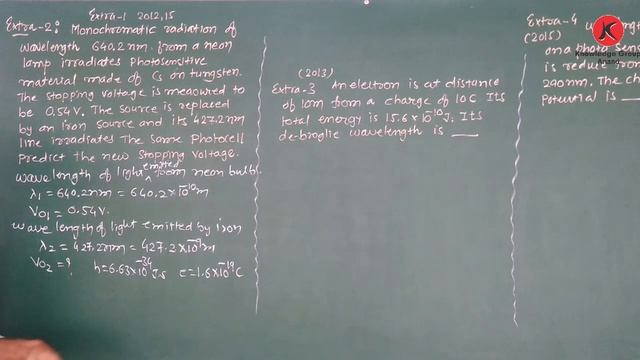 Extra-1 2012,15
Extra-2: Monochromatic radiation of
wavelength 640.2nm from a neon
lamp irradiates photosensitive
material made of Cs on tungsten.
The stopping voltage is measured to
be 0.54V. The source is replaced
by an iron source and its 427.2nm
line irradiates the same photocell
predict the new stopping voltage.
wavelength of light emitted from neon bulb
λ1 = 640.2nm = 640.2×10⁻¹⁰m
V01 = 0.54V.
wave length of light emitted by iron
λ2 = 427.2nm = 427.2×10⁻⁹m
V02 = ? h=6.63×10⁻³⁴J.s e=1.6×10⁻¹⁹C
(2013)
Extra-3 An electron is at distance
of 10m from a charge of 10C Its
total energy is 15.6×10⁻¹⁰J. Its
de-broglie wavelength is ___
Extra-4
(2015) on a photo sens
is reduce
290nm. The ch
potential is ___
K
Knowledge Group
Anang